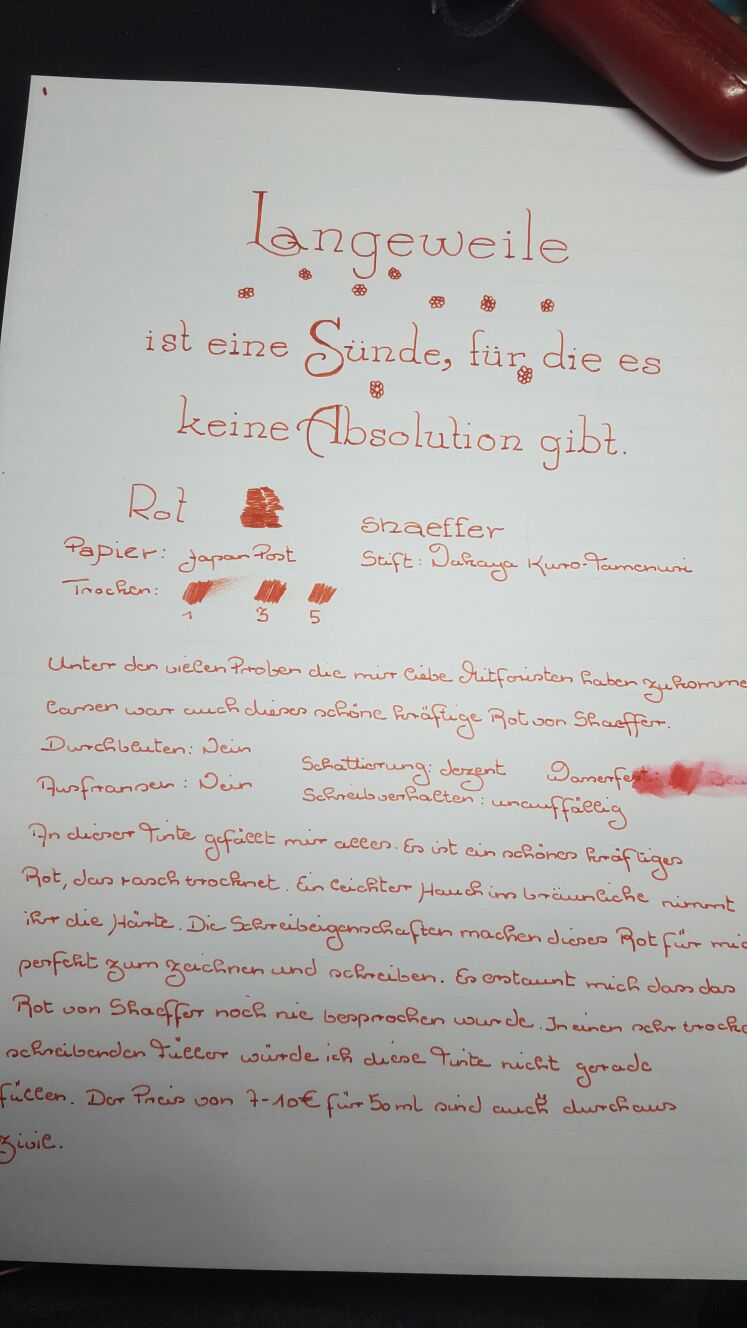 Langeweile
ist eine Sünde, für die es
keine Absolution gibt.
Rot
Shaeffer
Papier: Japan Post
Stift: Dahaya Kuro-Tamenuri
Trocken:
1 3 5
Unter den vielen Proben die mir liebe Mitforisten haben zukomme
lassen war auch dieses schöne kräftige Rot von Shaeffer.
Durchbluten: Nein
Schattierung: dezent Wasserfest:
Ausfransen: Nein
Schreibverhalten: unauffällig
An dieser Tinte gefällt mir alles. Es ist ein schönes kräftiges
Rot, das rasch trocknet. Ein leichter Hauch ins bräunliche nimmt
ihr die Härte. Die Schreibeigenschaften machen dieses Rot für mic
perfekt zum zeichnen und schreiben. Es erstaunt mich dass das
Rot von Shaeffer noch nie besprochen wurde. In einen sehr trocke
schreibenden Füller würde ich diese Tinte nicht gerade
füllen. Der Preis von 7-10€ für 50ml sind auch durchaus
zivil.